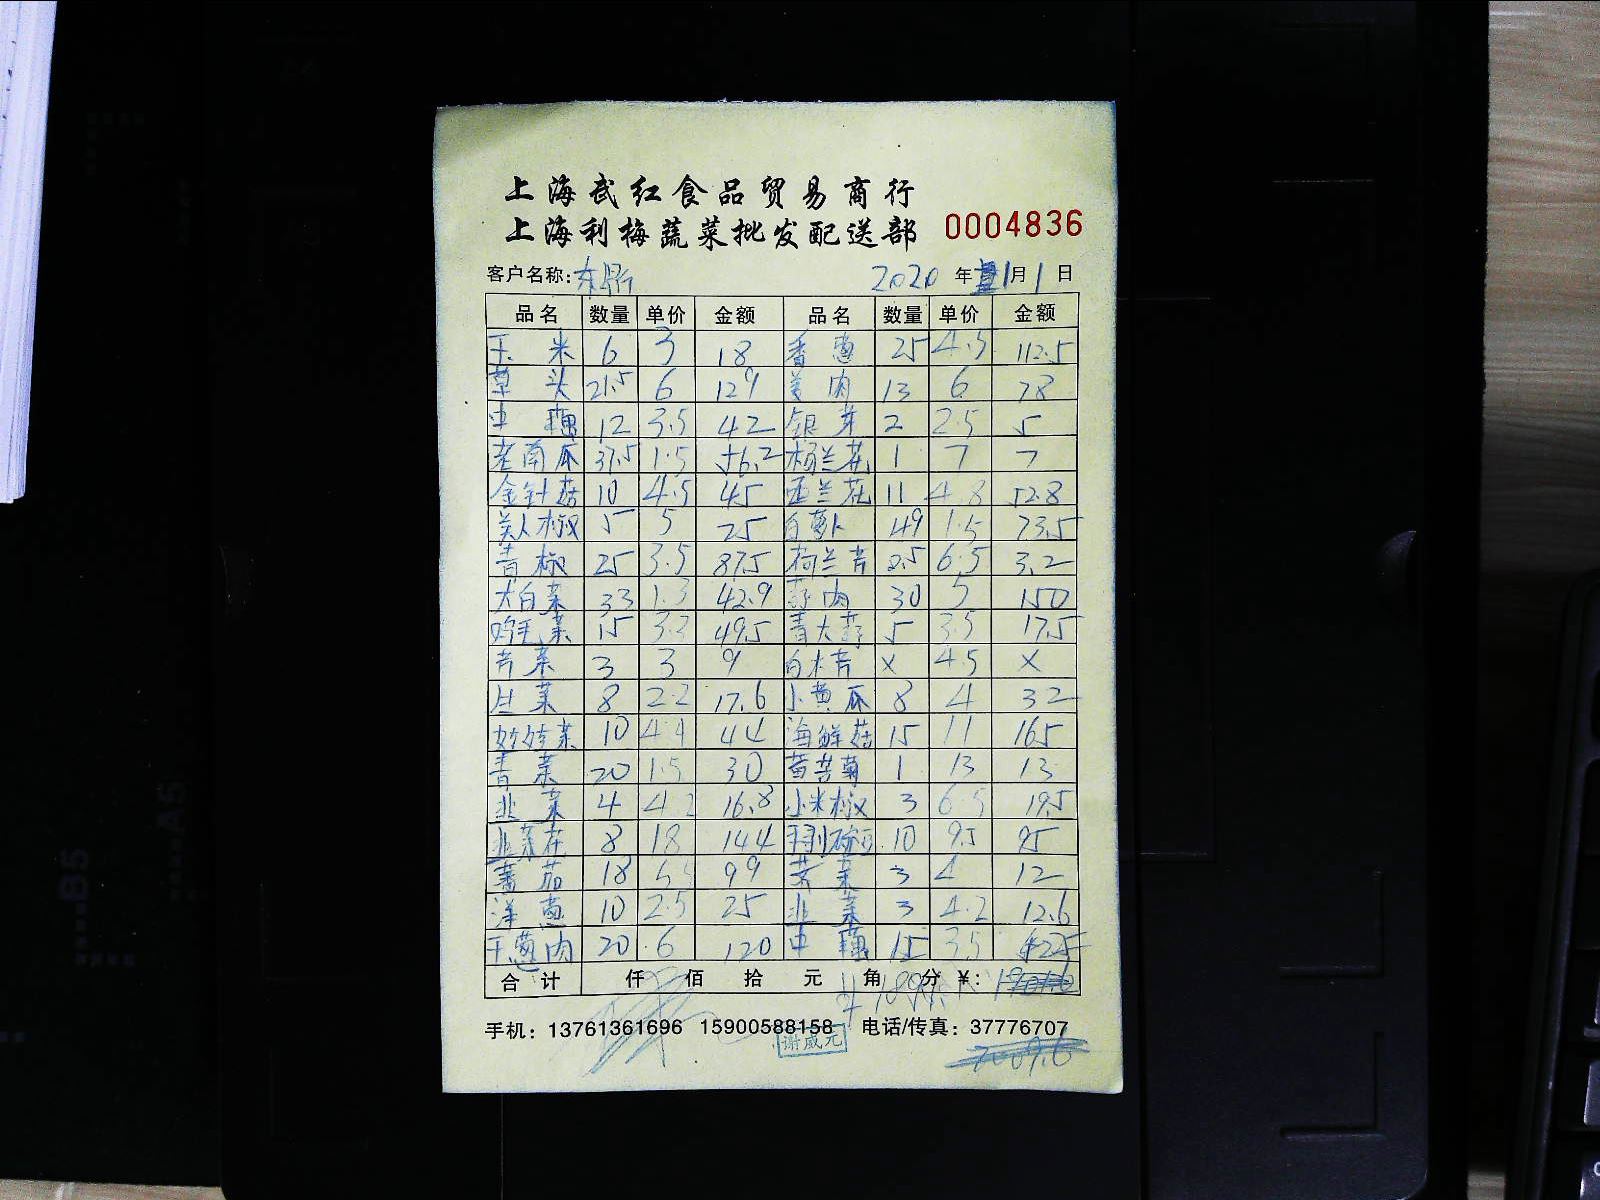 上海武红食品贸易商行
上海利梅蔬菜批发配送部 0004836
客户名称: 2020 年 1 月 1 日
品名 数量 单价 金额 品名 数量 单价 金额
玉米 6 3 18 香葱 25 4.5 112.5
草头 21.5 6 129 姜肉 13 6 78
中藕 12 3.5 42 银芽 2 2.5 5
老南瓜 37.5 1.5 56.2 杨兰花 1 7 7
金针菇 10 4.5 45 西兰花 11 4.8 52.8
美人椒 5 5 25 白萝卜 49 1.5 73.5
青椒 25 3.5 87.5 荷兰芹 0.5 6.5 3.2
大白菜 33 1.3 42.9 蒜肉 30 5 150
鸡毛菜 15 3.3 49.5 青大蒜 5 3.5 17.5
芹菜 3 3 9 白水芹 x 4.5 x
生菜 8 2.2 17.6 小黄瓜 8 4 32
娃娃菜 10 4.4 44 海鲜菇 15 11 165
青菜 20 1.5 30 苗苦菊 1 13 13
韭菜 4 4.2 16.8 小米椒 3 6.5 19.5
韭菜花 8 18 144 10 9.5 95
蕃茄 18 5.5 99 菜 3 4 12
洋葱 10 2.5 25 韭菜 3 4.2 12.6
干葱肉 20 6 120 中藕 15 3.5 52.5
合计 仟 佰 拾 元 角 分 ¥:
手机: 13761361696 15900588158 电话/传真: 37776707
谢威元
2009.6